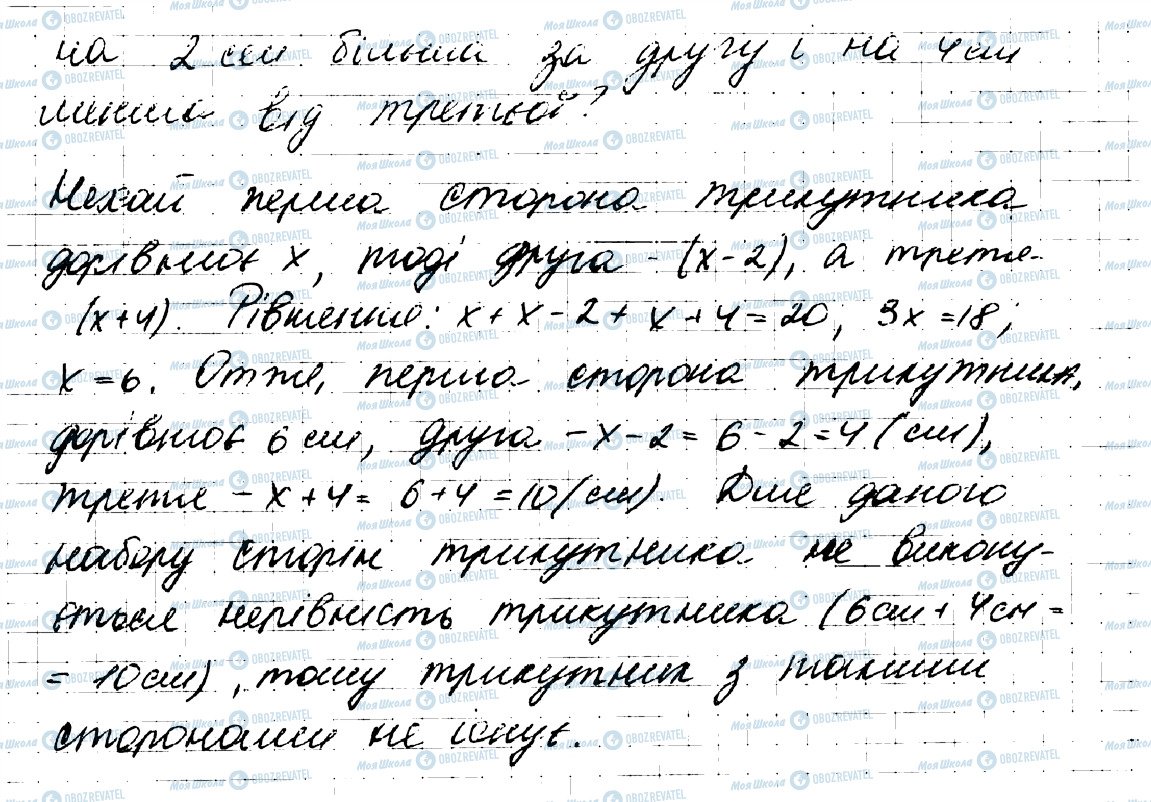 на 2 см більша за другу і на 4 см
менша від третьої?
Нехай перша сторона трикутника
дорівнює x, тоді друга - (x-2), а третя-
(x+4). Рівняння: x+x-2+x+4=20, 3x=18;
x=6. Отже, перша сторона трикутника,
дорівнює 6 см, друга -x-2=6-2=4 (см),
третя -x+4=6+4=10 (см). Для даного
набору сторін трикутника не викону-
ється нерівність трикутника (6см+4см=
=10см), тому трикутник з такими
сторонами не існує.